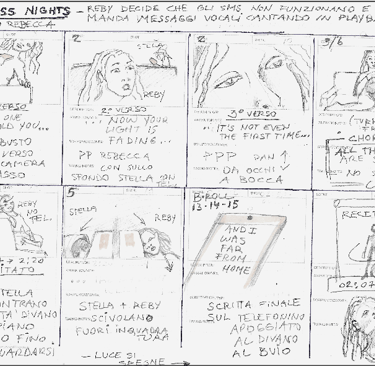 SS NIGHTS - REBY DECIDE CHE GLI SMS NON FUNZIONANO E
REBECCA MANDA MESSAGGI VOCALI CANTANDO IN PLAYB
VERSO
ONE
LD YOU...
BUSTO
VERSO
CAMERA
ASSO
2
STELLA
REBY
2° VERSO
... NOW YOUR
LIGHT IS
FADING...
PP REBECCA
CON SULLO
SFONDO STELLA
TEL.
2
3° VERSO
...IT'S NOT EVEN
THE FIRST TIME...
PPP PAN
DA OCCHI A
BOCCA
3/6
VERSO
CHO
ALL TH
ARE
NO S
REBY
NO
TEL.
2:20
ITATO
STELLA
ONTRANO
TA' DIVANO
PIANO
O FINO
UARDARSI
5
STELLA
REBY
STELLA + REBY
SCIVOLANO
FUORI INQUADRA
TURA
- LUCE SI
SPEGNE →
B-ROLL
13-14-15
AND I
WAS
FAR
FROM
HOME
SCRITTA FINALE
SUL TELEFONINO
APPOGGIATO
AL DIVANO
AL BUIO
RECIT